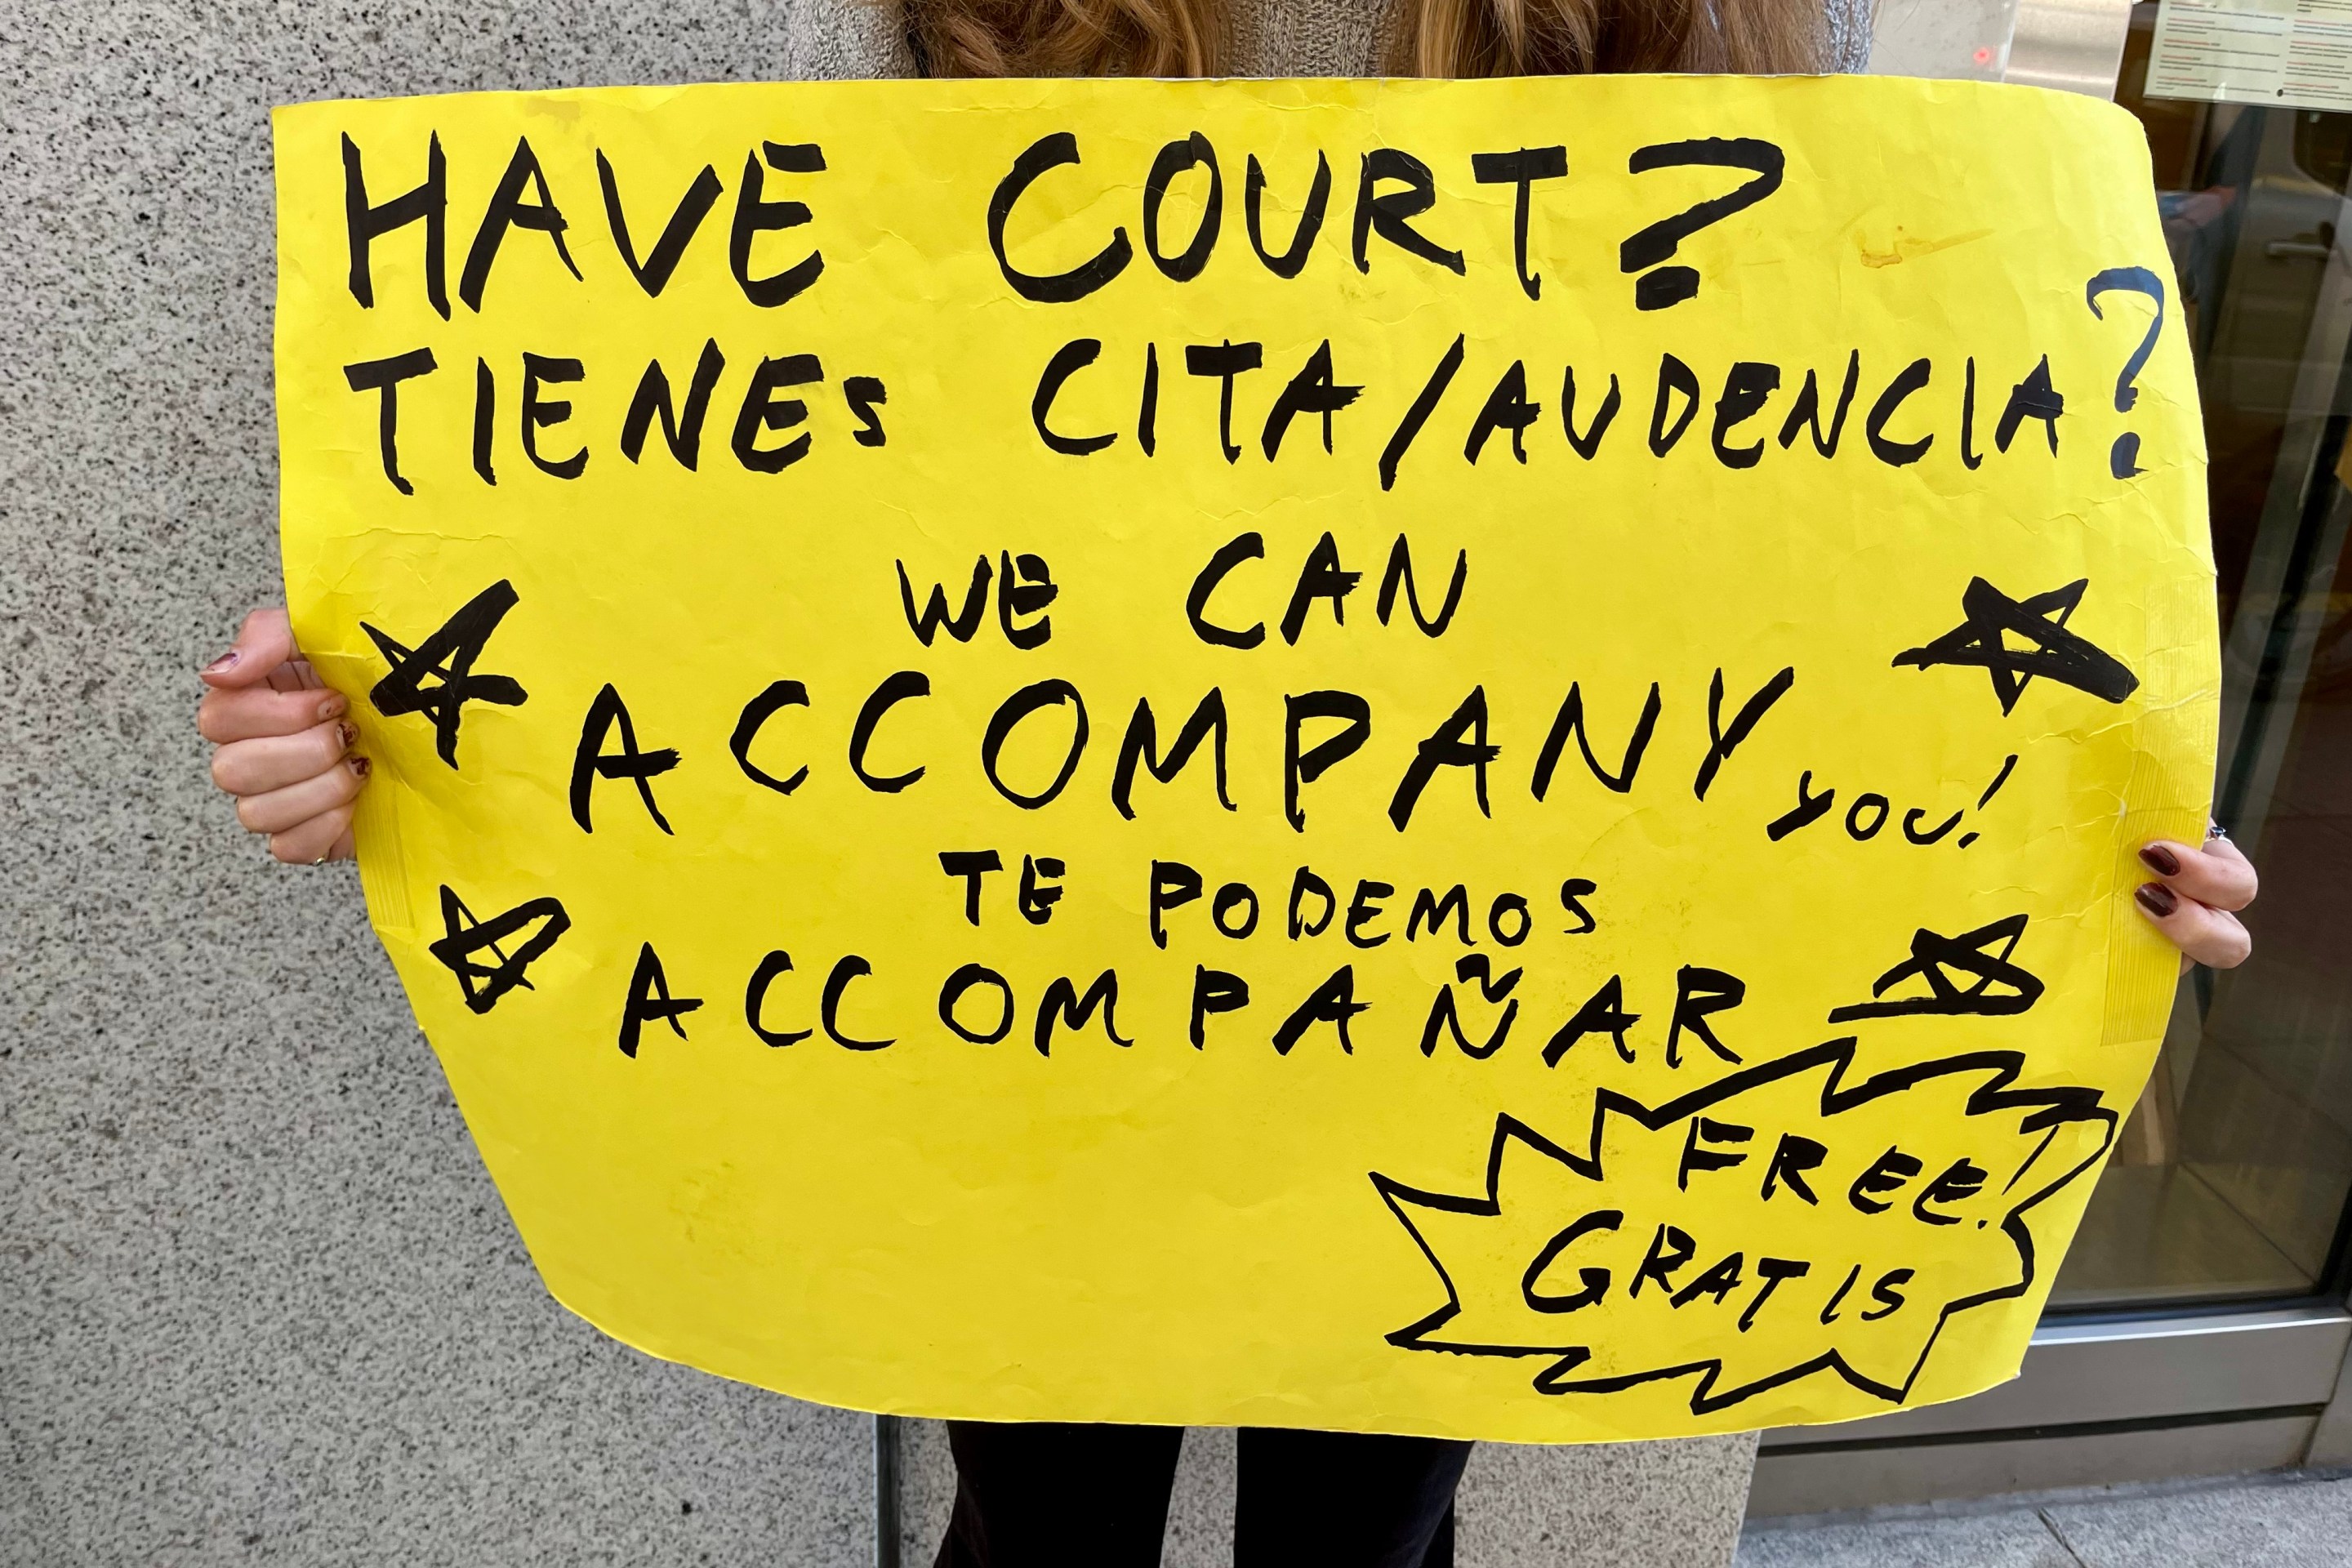 HAVE COURT?
TIENES CITA/AUDENCIA?
WE CAN
ACCOMPANY YOU!
TE PODEMOS
ACCOMPAÑAR
FREE!
GRATIS